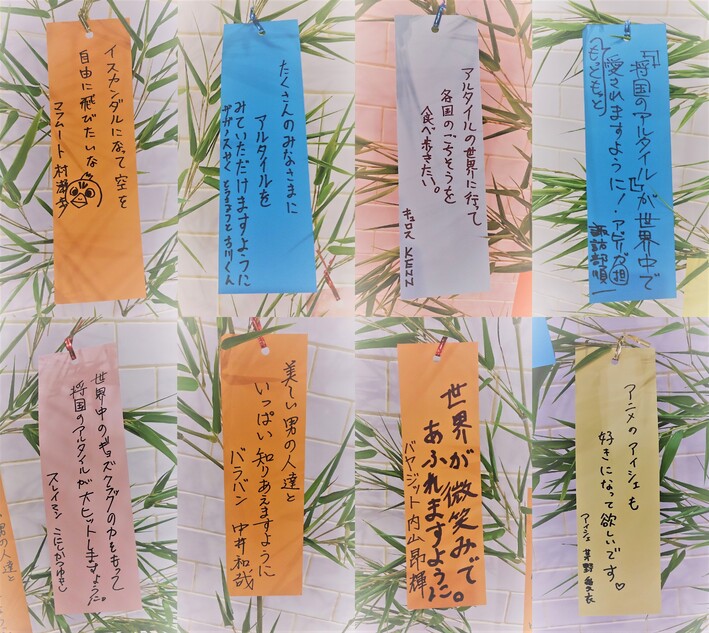 イスカンダルになって空を
自由に飛びたいな
マフムート 村瀬歩
たくさんのみなさまに
アルタイルを
みていただけますように
ザガノスやく とりうみ
アルタイルの世界に行って
各国のごちそうを
食べ歩きたい。
キュロス KENN
『将国のアルタイル』が世界中で
愛されますように!
もっともっと
諏訪部順
世界中のギョズクラックの力をもって
将国のアルタイルが大ヒットしますように。
スレイマン こにしかつゆき
美しい男の人達と
いっぱい知りあえますように
バラバン 中井和哉
世界が微笑みで
あふれますように。
バヤジット 内山昂輝
アニメのアイシェも
好きになって欲しいです♡
アイシェ 茅野愛衣
男の人達と